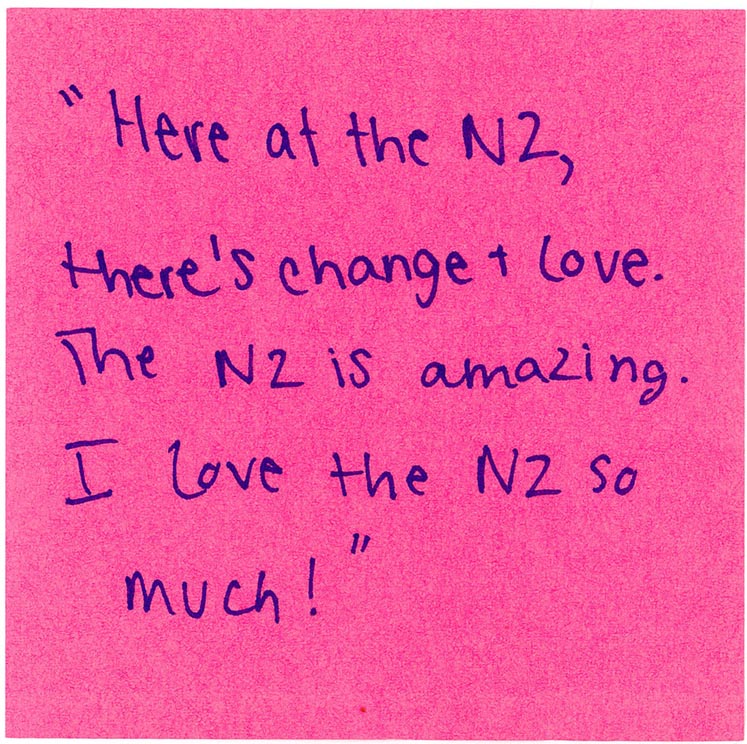 "Here at the NZ,
there's change + love.
The NZ is amazing.
I love the NZ so
much!"